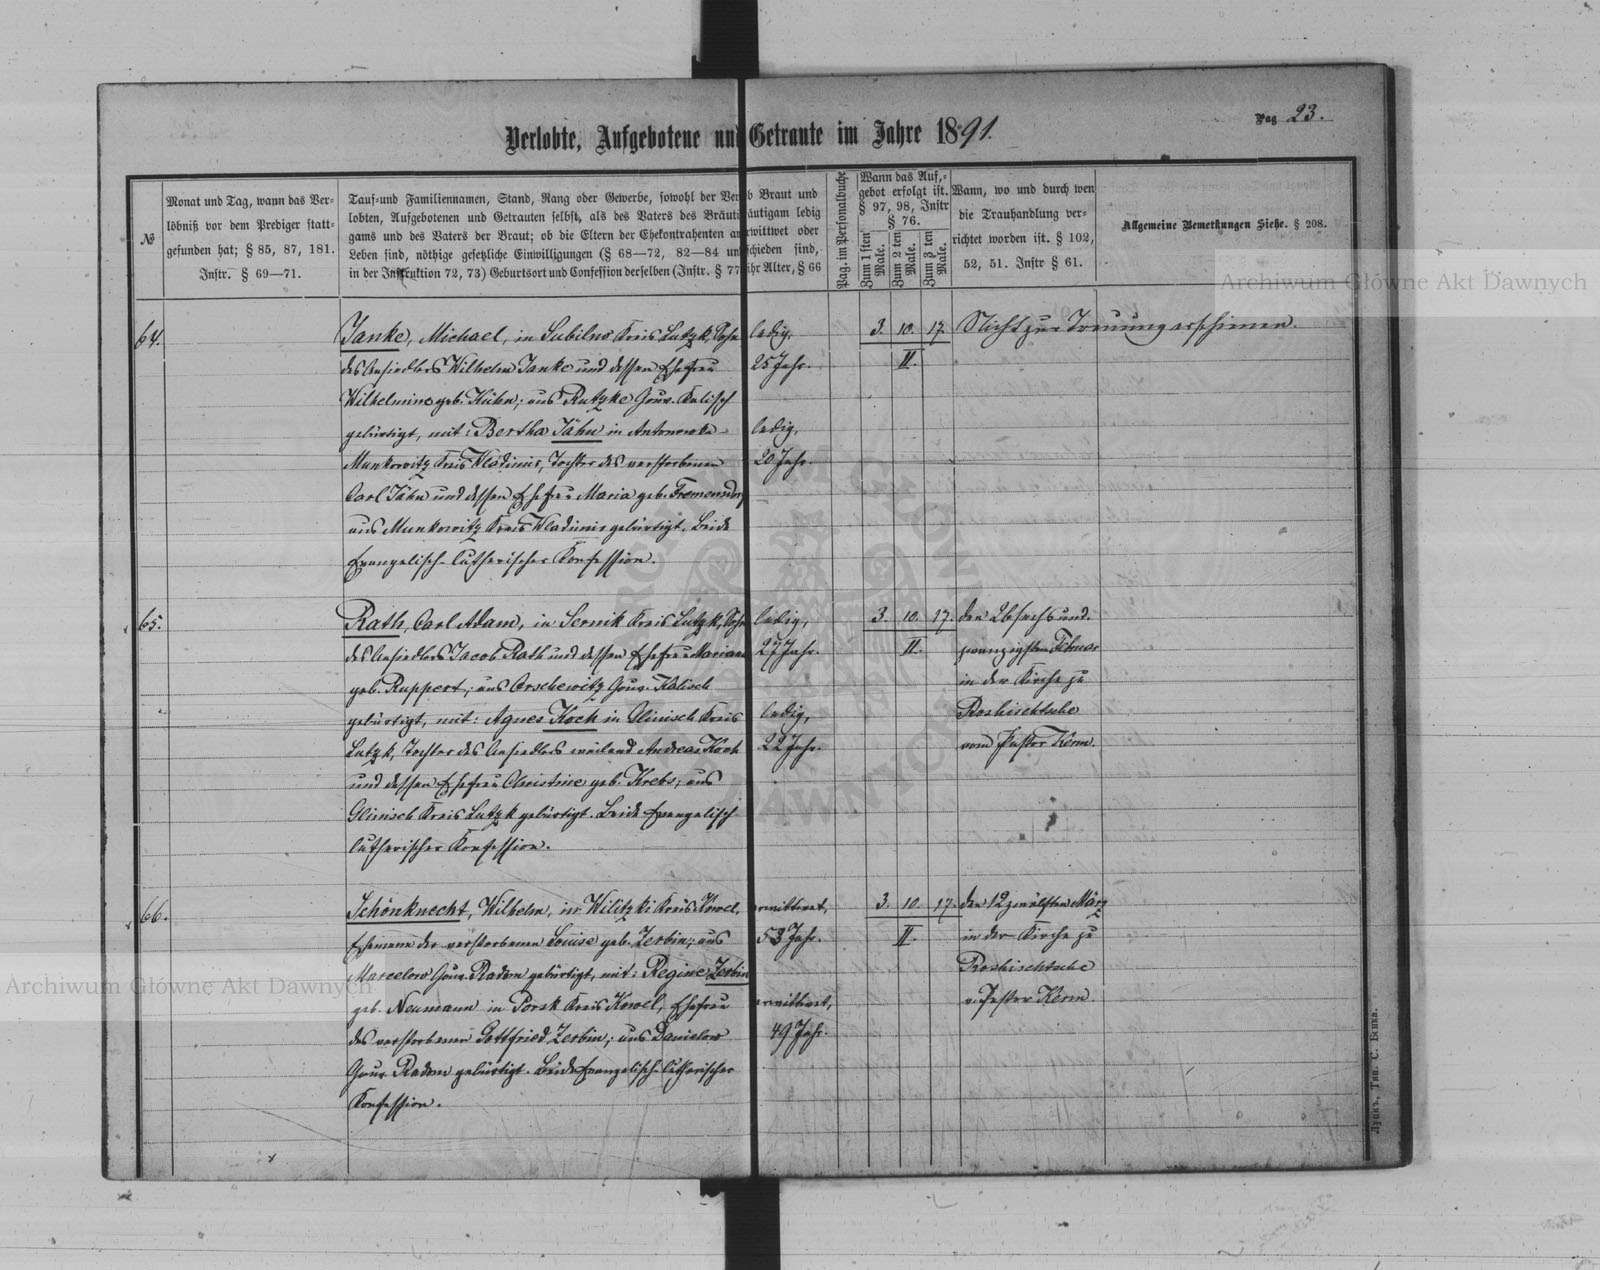 Pag 23.
Verlobte, Aufgebotene und Getraute im Jahre 1891.
№
Monat und Tag, wann das Ver-
löbniß vor dem Prediger statt-
gefunden hat; § 85, 87, 181.
Instr. § 69—71.
Tauf-und Familiennamen, Stand, Rang oder Gewerbe, sowohl der Ver
lobten, Aufgebotenen und Getrauten selbst, als des Vaters des Bräuti
gams und des Vaters der Braut; ob die Eltern der Ehekontrahenten am
Leben sind, nöthige gesetzliche Einwilligungen (§ 68—72, 82—84 un
in der Instruktion 72, 73) Geburtsort und Confession derselben (Instr. § 77
b Braut und
äutigam ledig
rwittwet oder
schieden sind,
ihr Alter, § 66
Pag. im Personalbuche
Wann das Auf,=
gebot erfolgt ist.
§ 97, 98, Instr
§ 76.
Zum 1sten Male.
Zum 2 ten Male.
Zum 3 ten Male.
Wann, wo und durch wen
die Trauhandlung ver-
richtet worden ist. § 102,
52, 51. Instr § 61.
Allgemeine Bemerkungen Siehe. § 208.
Archiwum Główne Akt Dawnych
64.
Janke, Michael, in Subilno Kreis Lutzk, Sohn
des Ansiedlers Wilhelm Janke und dessen Ehefrau
Wilhelmine geb. Kühn; aus Rutzke Gouv. Kalisch
gebürtigt, mit: Bertha Jähn in Antonowka
Munkowitz Kreis Wladimir, Tochter des verstorbenen
Carl Jähn und dessen Ehefrau Maria geb. Fremensdorf
aus Munkowitz Kreis Wladimir gebürtigt. Beide
Evangelisch-lutherischer Konfession.
ledig,
25 Jahr.
ledig,
20 Jahr.
3. 10. 17.
II.
Nicht zur Trauung erschienen.
65.
Rath, Carl Adam, in Sernik Kreis Lutzk, Sohn
des Ansiedlers Jacob Rath und dessen Ehefrau Mariane
geb. Ruppert; aus Orschewitz Gouv. Kalisch
gebürtigt, mit: Agnes Koch in Glinisch Kreis
Lutzk, Tochter des Ansiedlers weiland Andreas Koch
und dessen Ehefrau Christine geb. Krebs; aus
Glinisch Kreis Lutzk gebürtigt. Beide Evangelisch
lutherischer Konfession.
ledig,
27 Jahr.
ledig,
22 Jahr.
3. 10. 17.
II.
den 26 sechs und
zwanzigsten Februar
in der Kirche zu
Roshischtsche
vom Pastor Kerm.
66.
Schönknecht, Wilhelm, in Wilitzki Kreis Kowel,
Ehemann der verstorbenen Louise geb. Zerbin; aus
Marcelow Gouv. Radom gebürtigt, mit: Regine Zerbin
geb. Neumann in Porsk Kreis Kowel, Ehefrau
des verstorbenen Gottfried Zerbin; aus Danielow
Gouv. Radom gebürtigt. Beide Evangelisch-lutherischer
Konfession.
verwittwet,
53 Jahr.
verwittwet,
49 Jahr.
3. 10. 17.
II.
den 12 zwölften März
in der Kirche zu
Roshischtsche
v. Pastor Kerm.
Archiwum Główne Akt Dawnych
Луцкъ, Тип. С. Бенка.